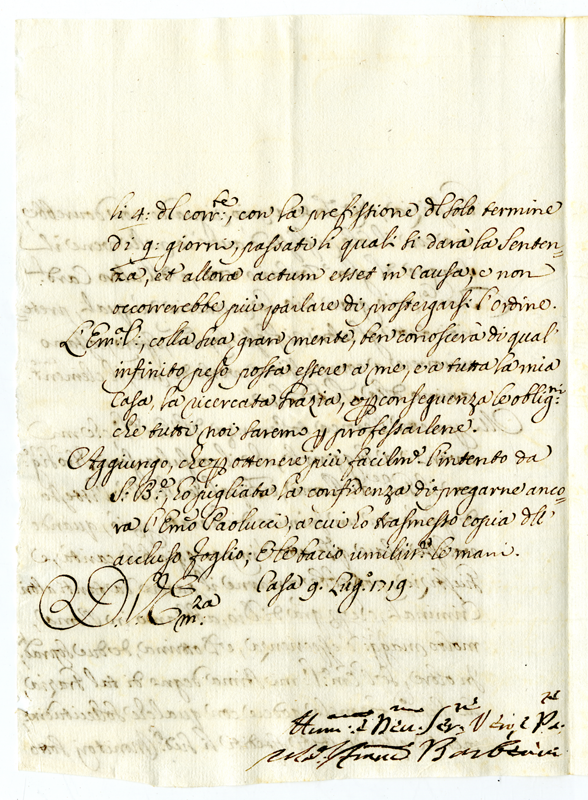 li 4: dl corr:te, con la prefissione dl solo termine
di 9: giorni, passati li quali si darà la Senten-
za, et allora actum esset in causa, e non
occorrerebbe più parlare di prostergarsi l'ordine.
L'Em:a V:, colla sua gran mente, ben conoscerà di qual
infinito peso possa essere a me, e a tutta la mia
Casa, la ricercata grazia, e p conseguenza le oblig:ni
che tutti noi saremo p professarlene.
Aggiungo, che p ottenere più facilm:te l'intento da
S: B:e, ho pigliata la confidenza di pregarne anco-
ra l'Emo Paolucci, a cui ho trasmesso copia dll'
accluso foglio; E le bacio umiliss:te le mani.
Casa 9. Lug:o 1719.,
D. V. Em:za
Hum:mo e Dev:mo Ser:re Vero, e P:re
Barberini